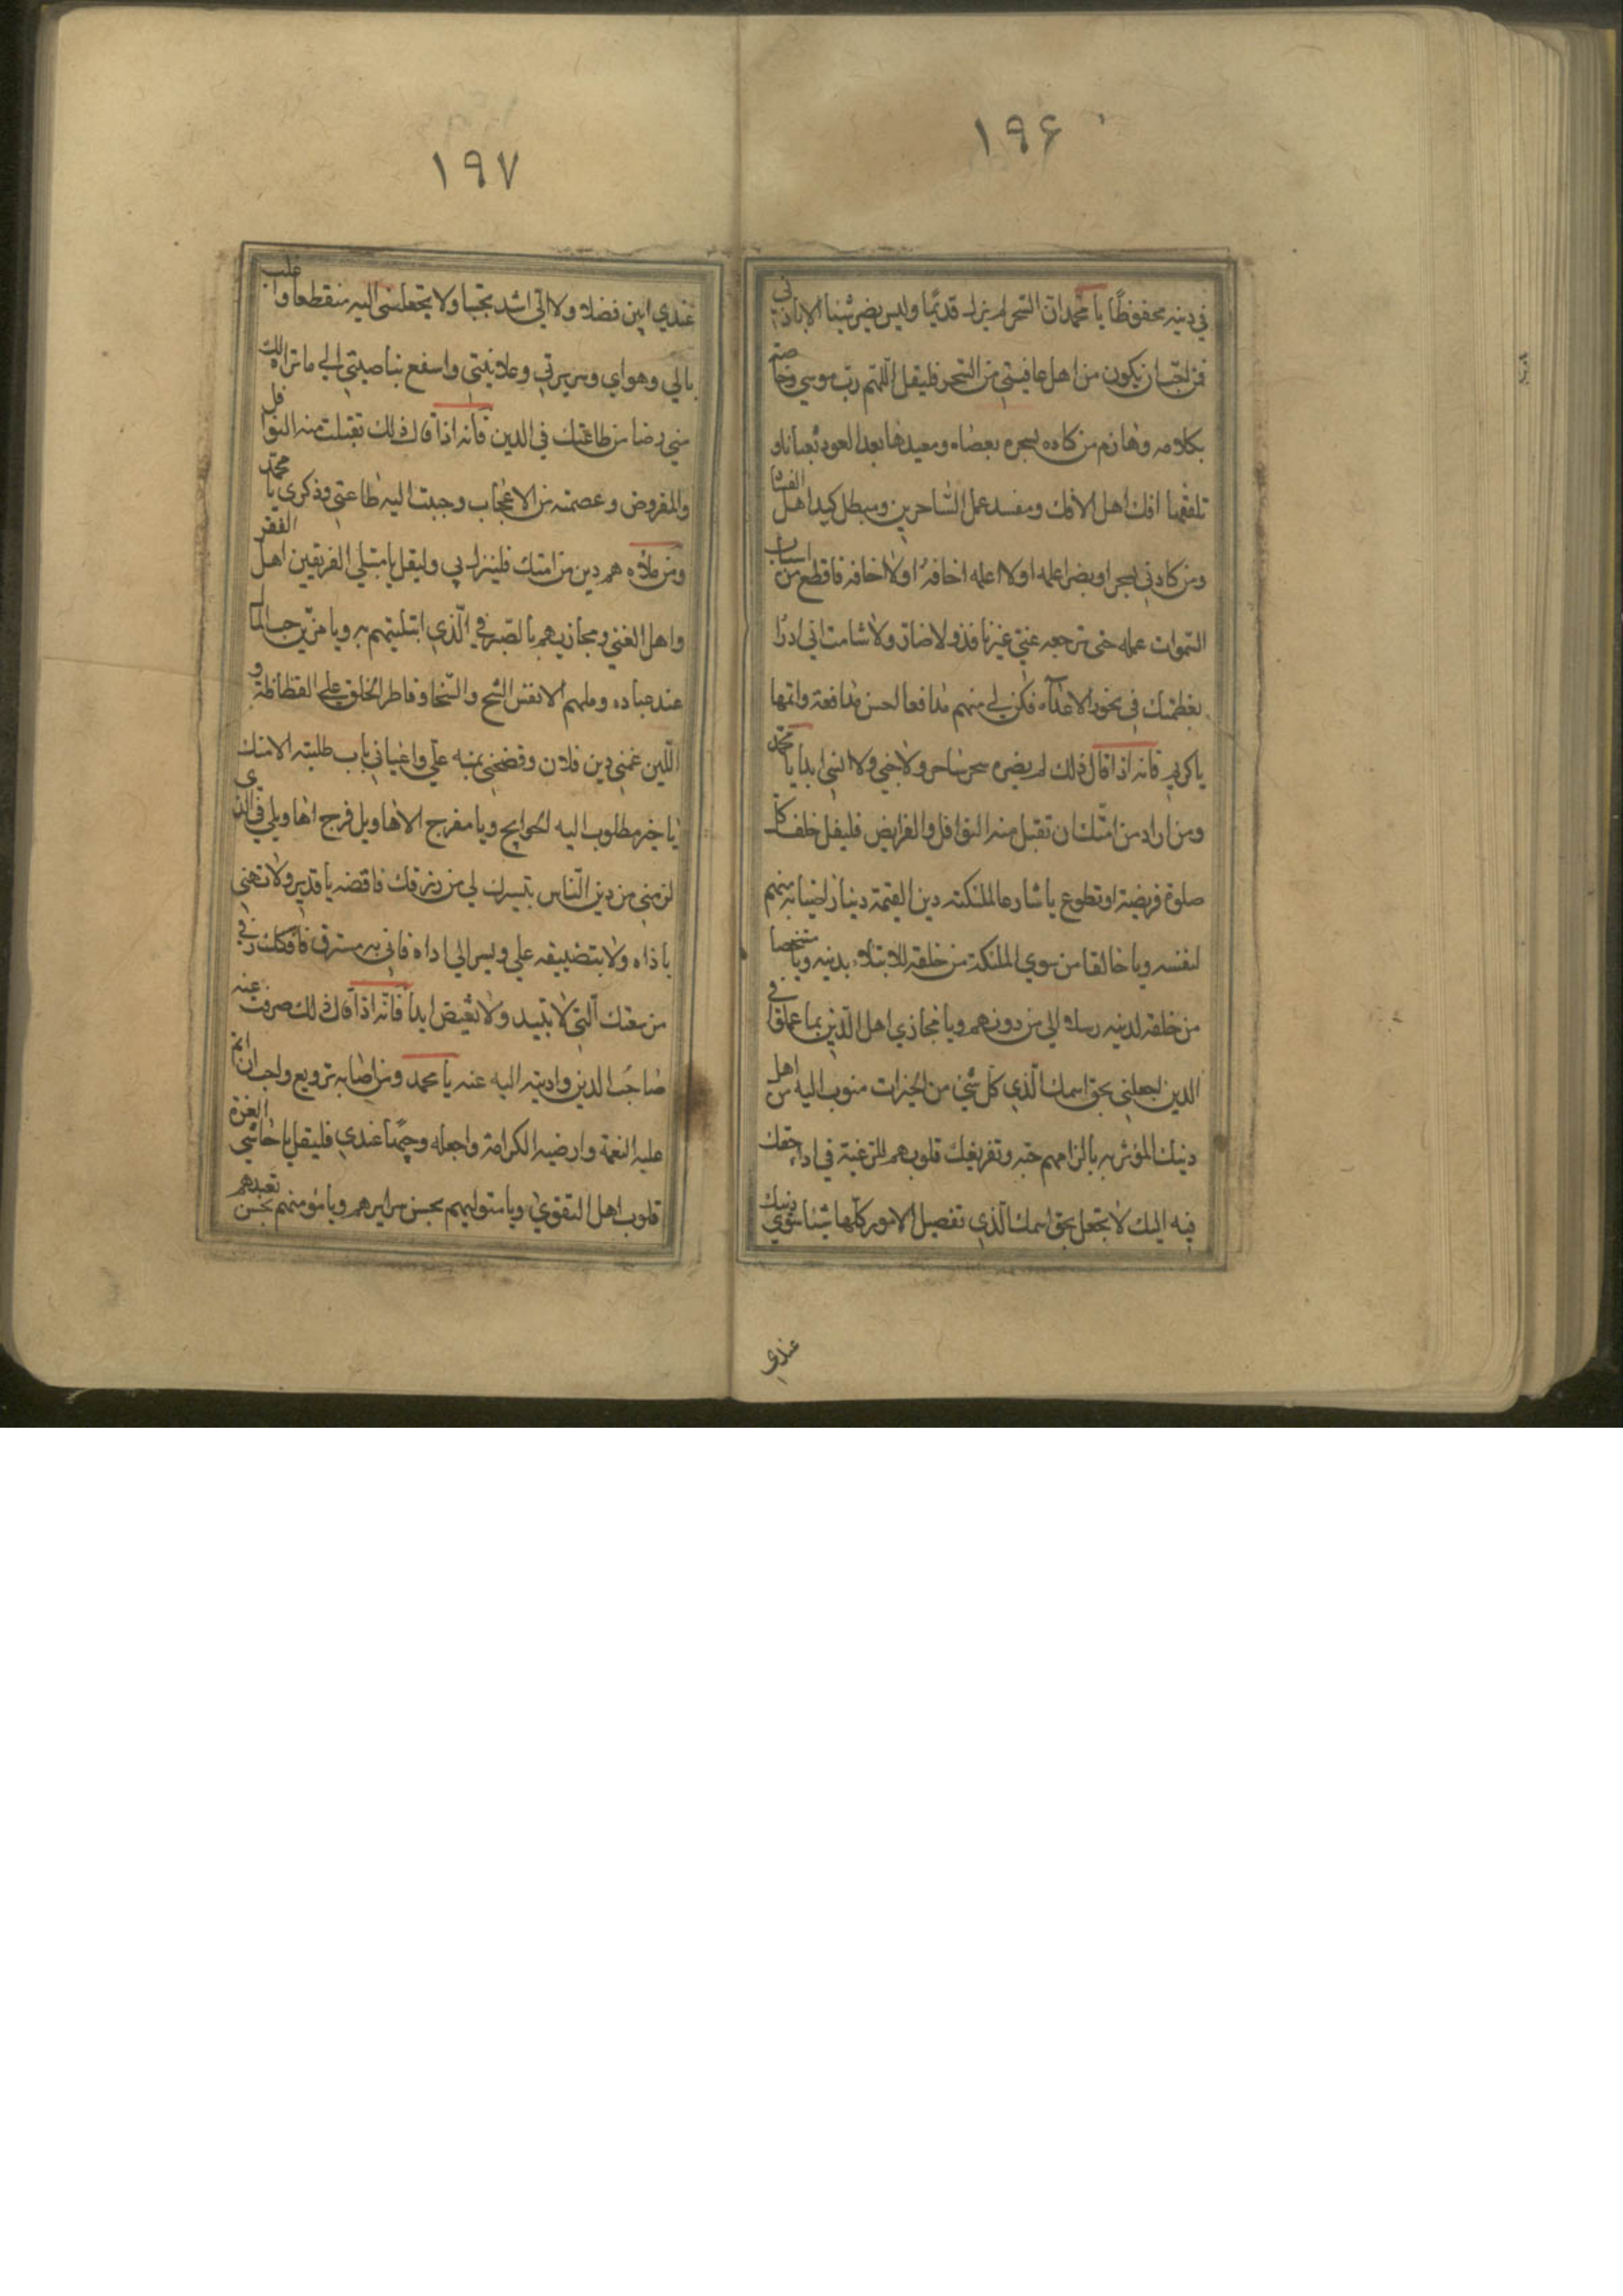 ١٩۶
في دينه محفوظا يا محمد ان السحر لم يزل قديما وليس يضر شيئا الا باذني
فمن احب ان يكون من اهل عافيتي من السحر فليقل اللهم رب موسي وخاصه
بكلامه وهازم من كاده بسحره بعصاه ومعيدها بعد العود ثعبانا و
تلقفها افك اهل الافك ومفسد عمل الساحرين ومبطل كيد اهل الفساد
ومن كادني بسحر او بضر اعلمه او لا اعلمه اخافه او لا اخافه فاقطع من اسباب
السموات عمله حتى ترجعه عني غير نافذ ولا ضار ولا شامت اني ادرا
بعظمتك في نحور الاعداء فكن لي منهم مدافعا احسن مدافعة واتمها
يا كريم فانه اذا قال ذلك لم يضره سحر ساحر ولا جني ولا انسي ابدا يا محمد
ومن اراد من امتك ان تقبل منه النوافل والفرايض فليقل خلف كل
صلوة فريضة او تطوع يا شارعا لملئكته دين القيمة دينا راضيا به منهم
لنفسه ويا خالقا من سوي الملئكة من خلقه للابتلاء بدينه ويا مستخصا
من خلقه لدينه رسلا الي من دونهم ويا مجازي اهل الدين بما عملوا في
الدين اجعلني بحق اسمك الذي كل شئ من الخيرات منسوب اليه من اهل
دينك المؤثر به بالزامهم حقه وتفريغك قلوبهم للرغبة في اداء حقك
فيه اليك لا تجعل بحق اسمك الذي تفصيل الامور كلها شيئا سوي دينك
عندي
١٩٧
عندي ابين فضلا ولا الي اشد تحببا ولا تجعلني اليه منقطعا واغلب
بالي وهواي وسريرتي وعلانيتي واسفع بناصيتي الي ما تراه لك
مني رضا من طاعتك في الدين فانه اذا قال ذلك تقبلت منه النوافل
والمفروض وعصمته من الاعجاب وحببت اليه طاعتي وذكري يا محمد
ومن ملاه هم دين من امتك فلينزل بي وليقل يا مبتلي الفريقين اهل الفقر
واهل الغني ومجازيهم بالصبر في الذي ابتليتهم به ويا مزين حب المال
عند عباده وملهم الانفس الشح والسخا وفاطر الخلق علي الفظاظة و
اللين غمني دين فلان وفضحني بمنه علي واعياني باب طلبته الا منك
يا خير مطلوب اليه الحوايج ويا مفرج الاهاويل فرج اهاويلي في الذي
لزمني من دين الناس بتيسرك لي من رزقك فاقضه يا قدير ولا تهني
باذاه ولا بتضييقه علي ويسر لي اداه فاني به مسترق فافكك رقي
من سعتك التي لا تبيد ولا تغيض ابدا فانه اذا قال ذلك صرفت عنه
صاحب الدين واديته اليه عنه يا محمد ومن اصابه ترويع واحب ان اتم
عليه النعمة وارضيه الكرامة واجعله وجيها عندي فليقل يا حاشي العزة
قلوب اهل التقوي ويا متوليهم بحسن سرايرهم ويا مؤمنهم بحسن تعبدهم